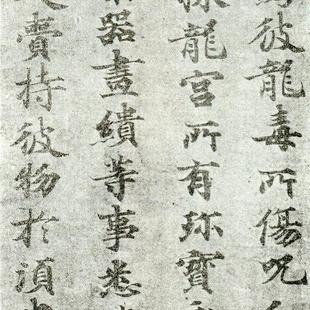 彼龍毒所傷呪
龍宮所有珎寶
器畫繢等事悉
賣持彼物於須